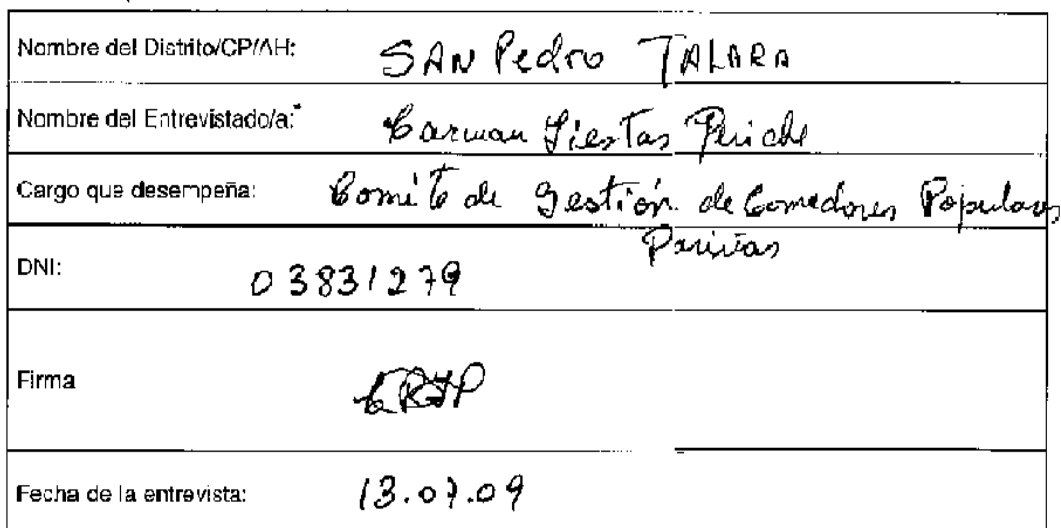 Nombre del Distrito/CP/AH: SAN Pedro TALARA
Nombre del Entrevistado/a: Carman Fiestas Periche
Cargo que desempeña: Comité de Gestión de Comedores Populares
Pariñas
DNI: 03831279
Firma
Fecha de la entrevista: 13.07.09